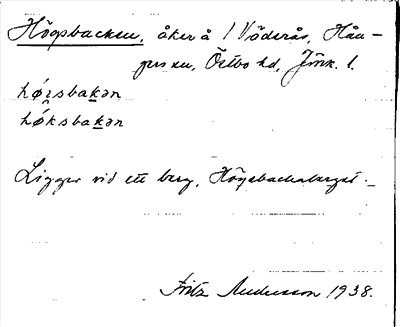 Högsbacken, åker å 1 Vöderås, Hån-
gers sn, Östbo hd, Jönk. l.
hǿi̯sbakən
hǿksbakən
Ligger vid ett berg, Högsbackaberget.
Fritz Andersson 1938.